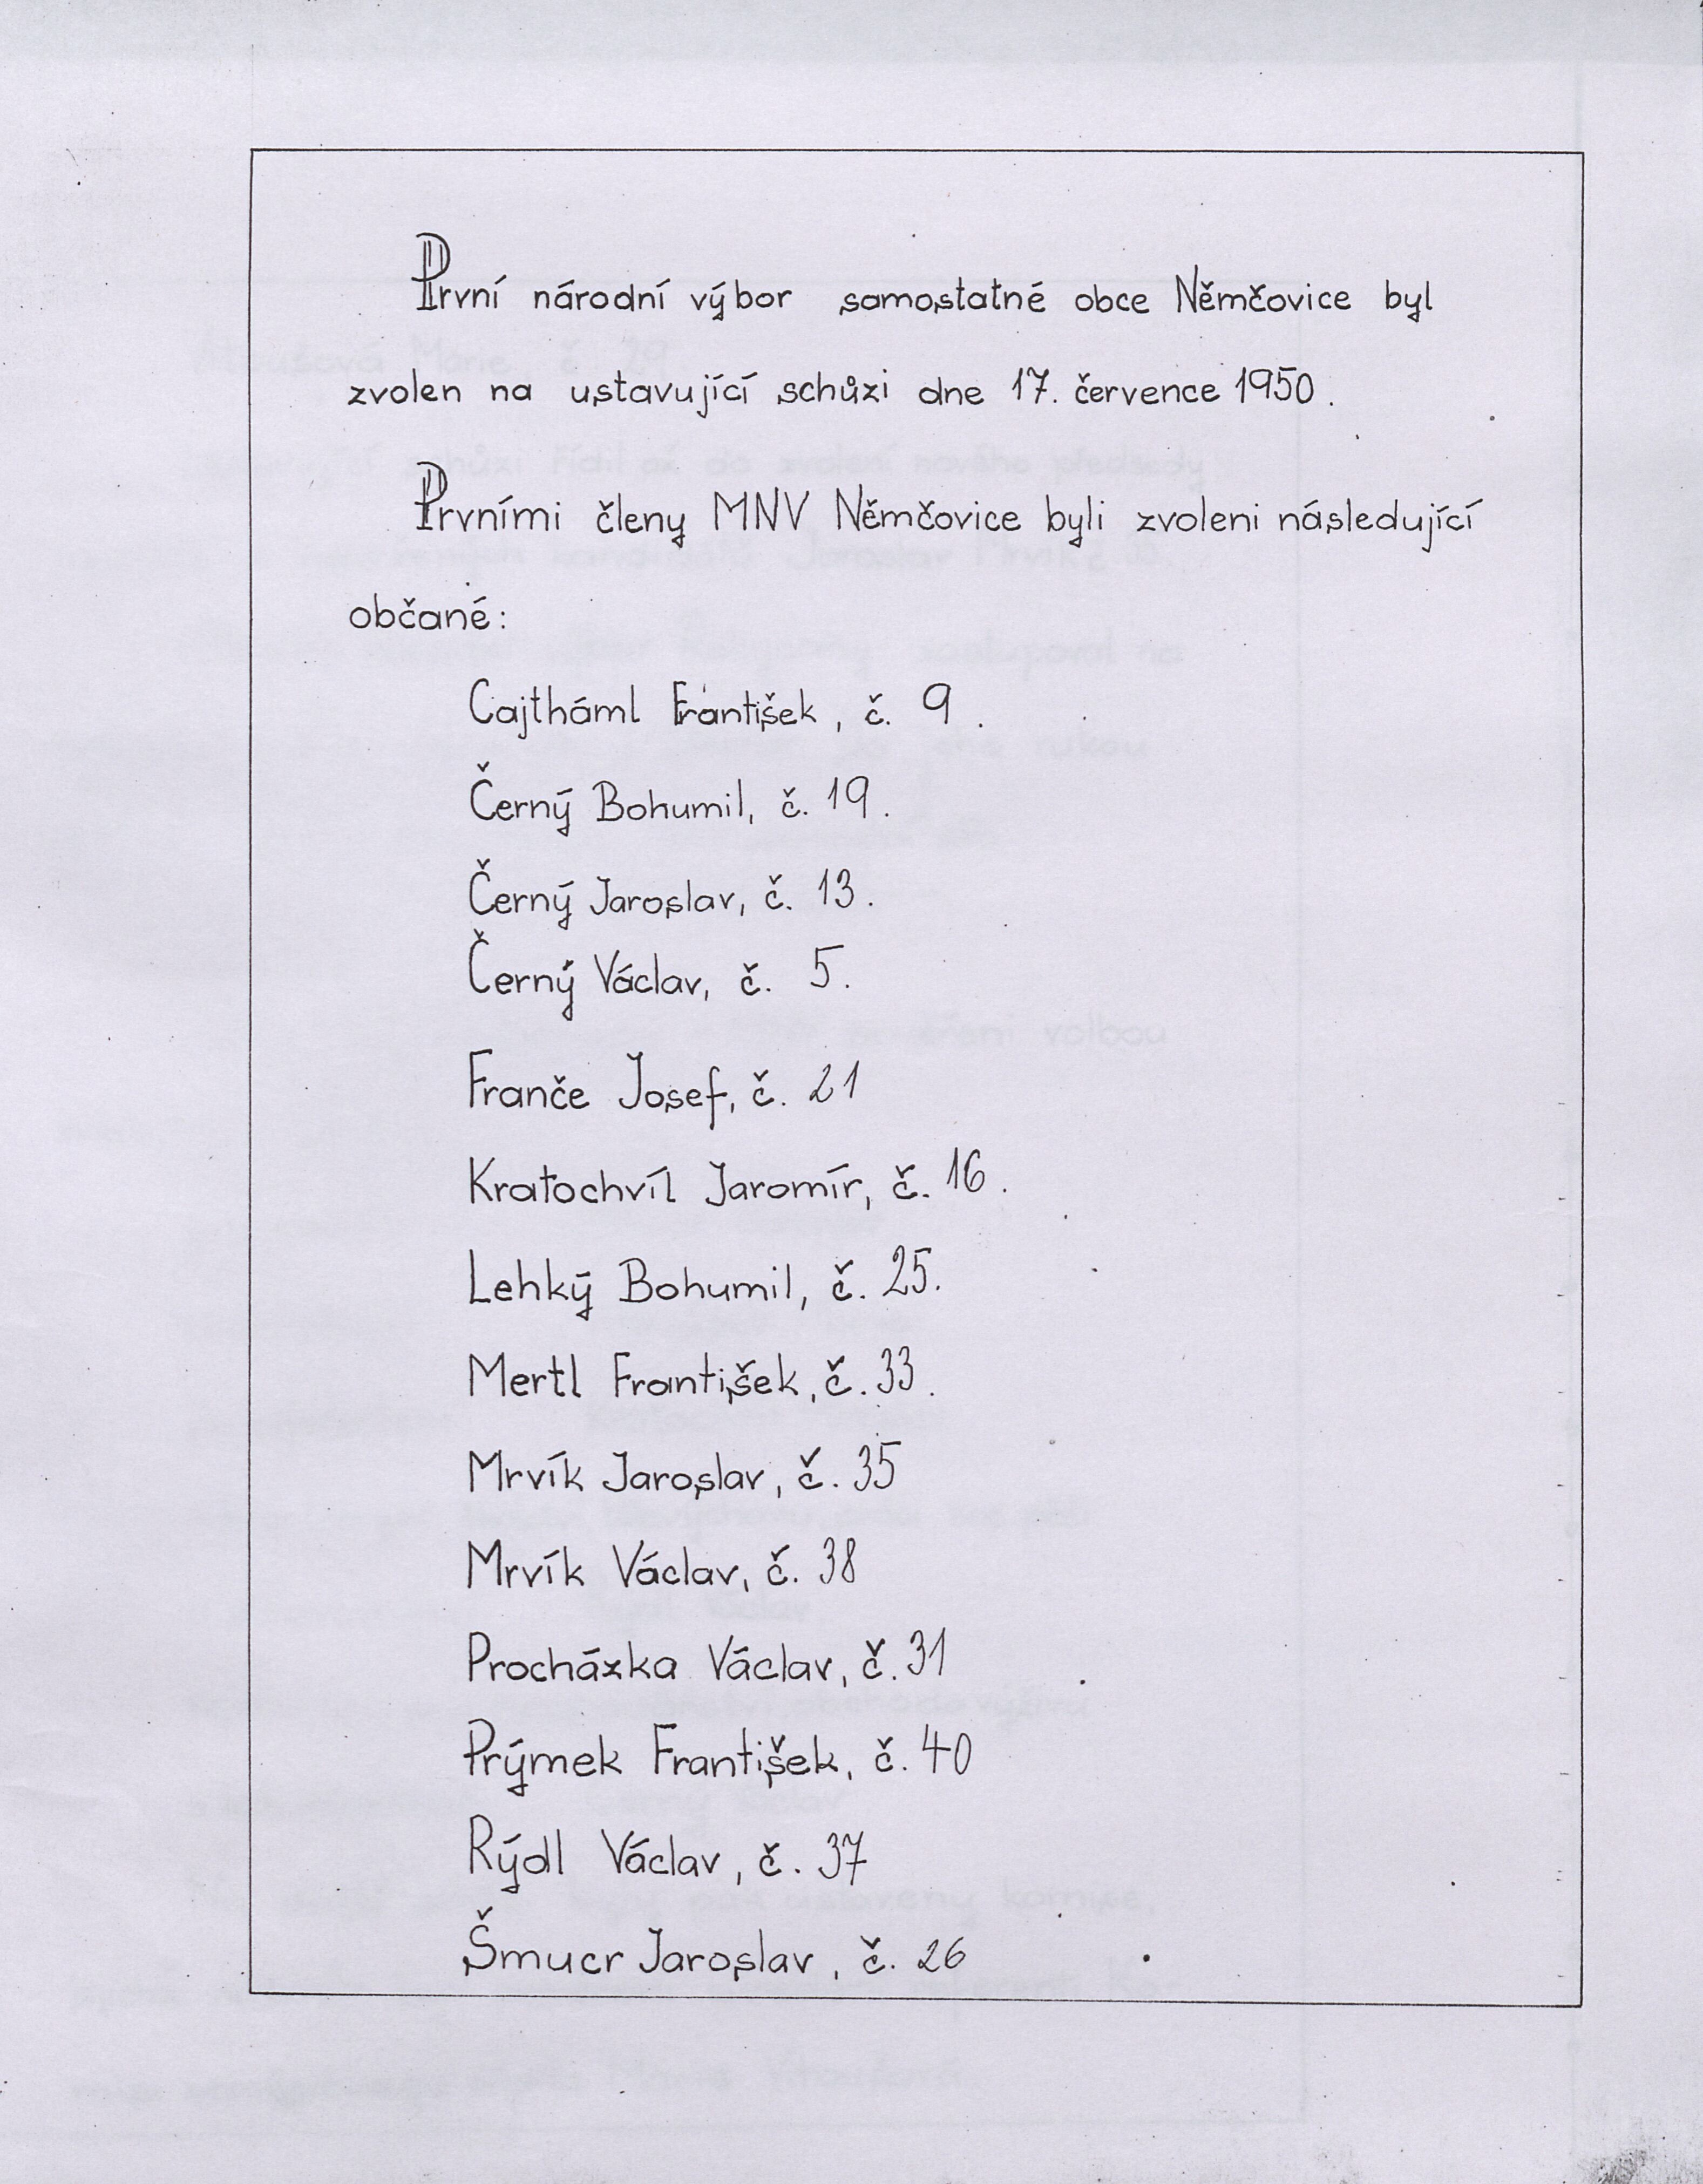 První národní výbor samostatné obce Němčovice byl
zvolen na ustavující schůzi dne 17. července 1950.
Prvními členy MNV Němčovice byli zvoleni následující
občané:
Cajthaml František, č. 9.
Černý Bohumil, č. 19.
Černý Jaroslav, č. 13.
Černý Václav, č. 5.
Franče Josef, č. 21
Kratochvíl Jaromír, č. 16.
Lehký Bohumil, č. 25.
Mertl František, č. 33.
Mrvík Jaroslav, č. 35
Mrvík Václav, č. 38
Procházka Václav, č. 31
Prýmek František, č. 40
Rýdl Václav, č. 37
Šmucr Jaroslav, č. 26